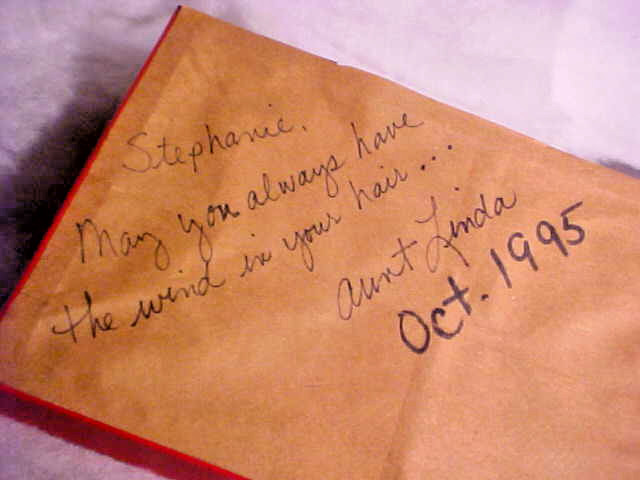 Stephanie.
May you always have
the wind in your hair...
Aunt Linda
Oct. 1995